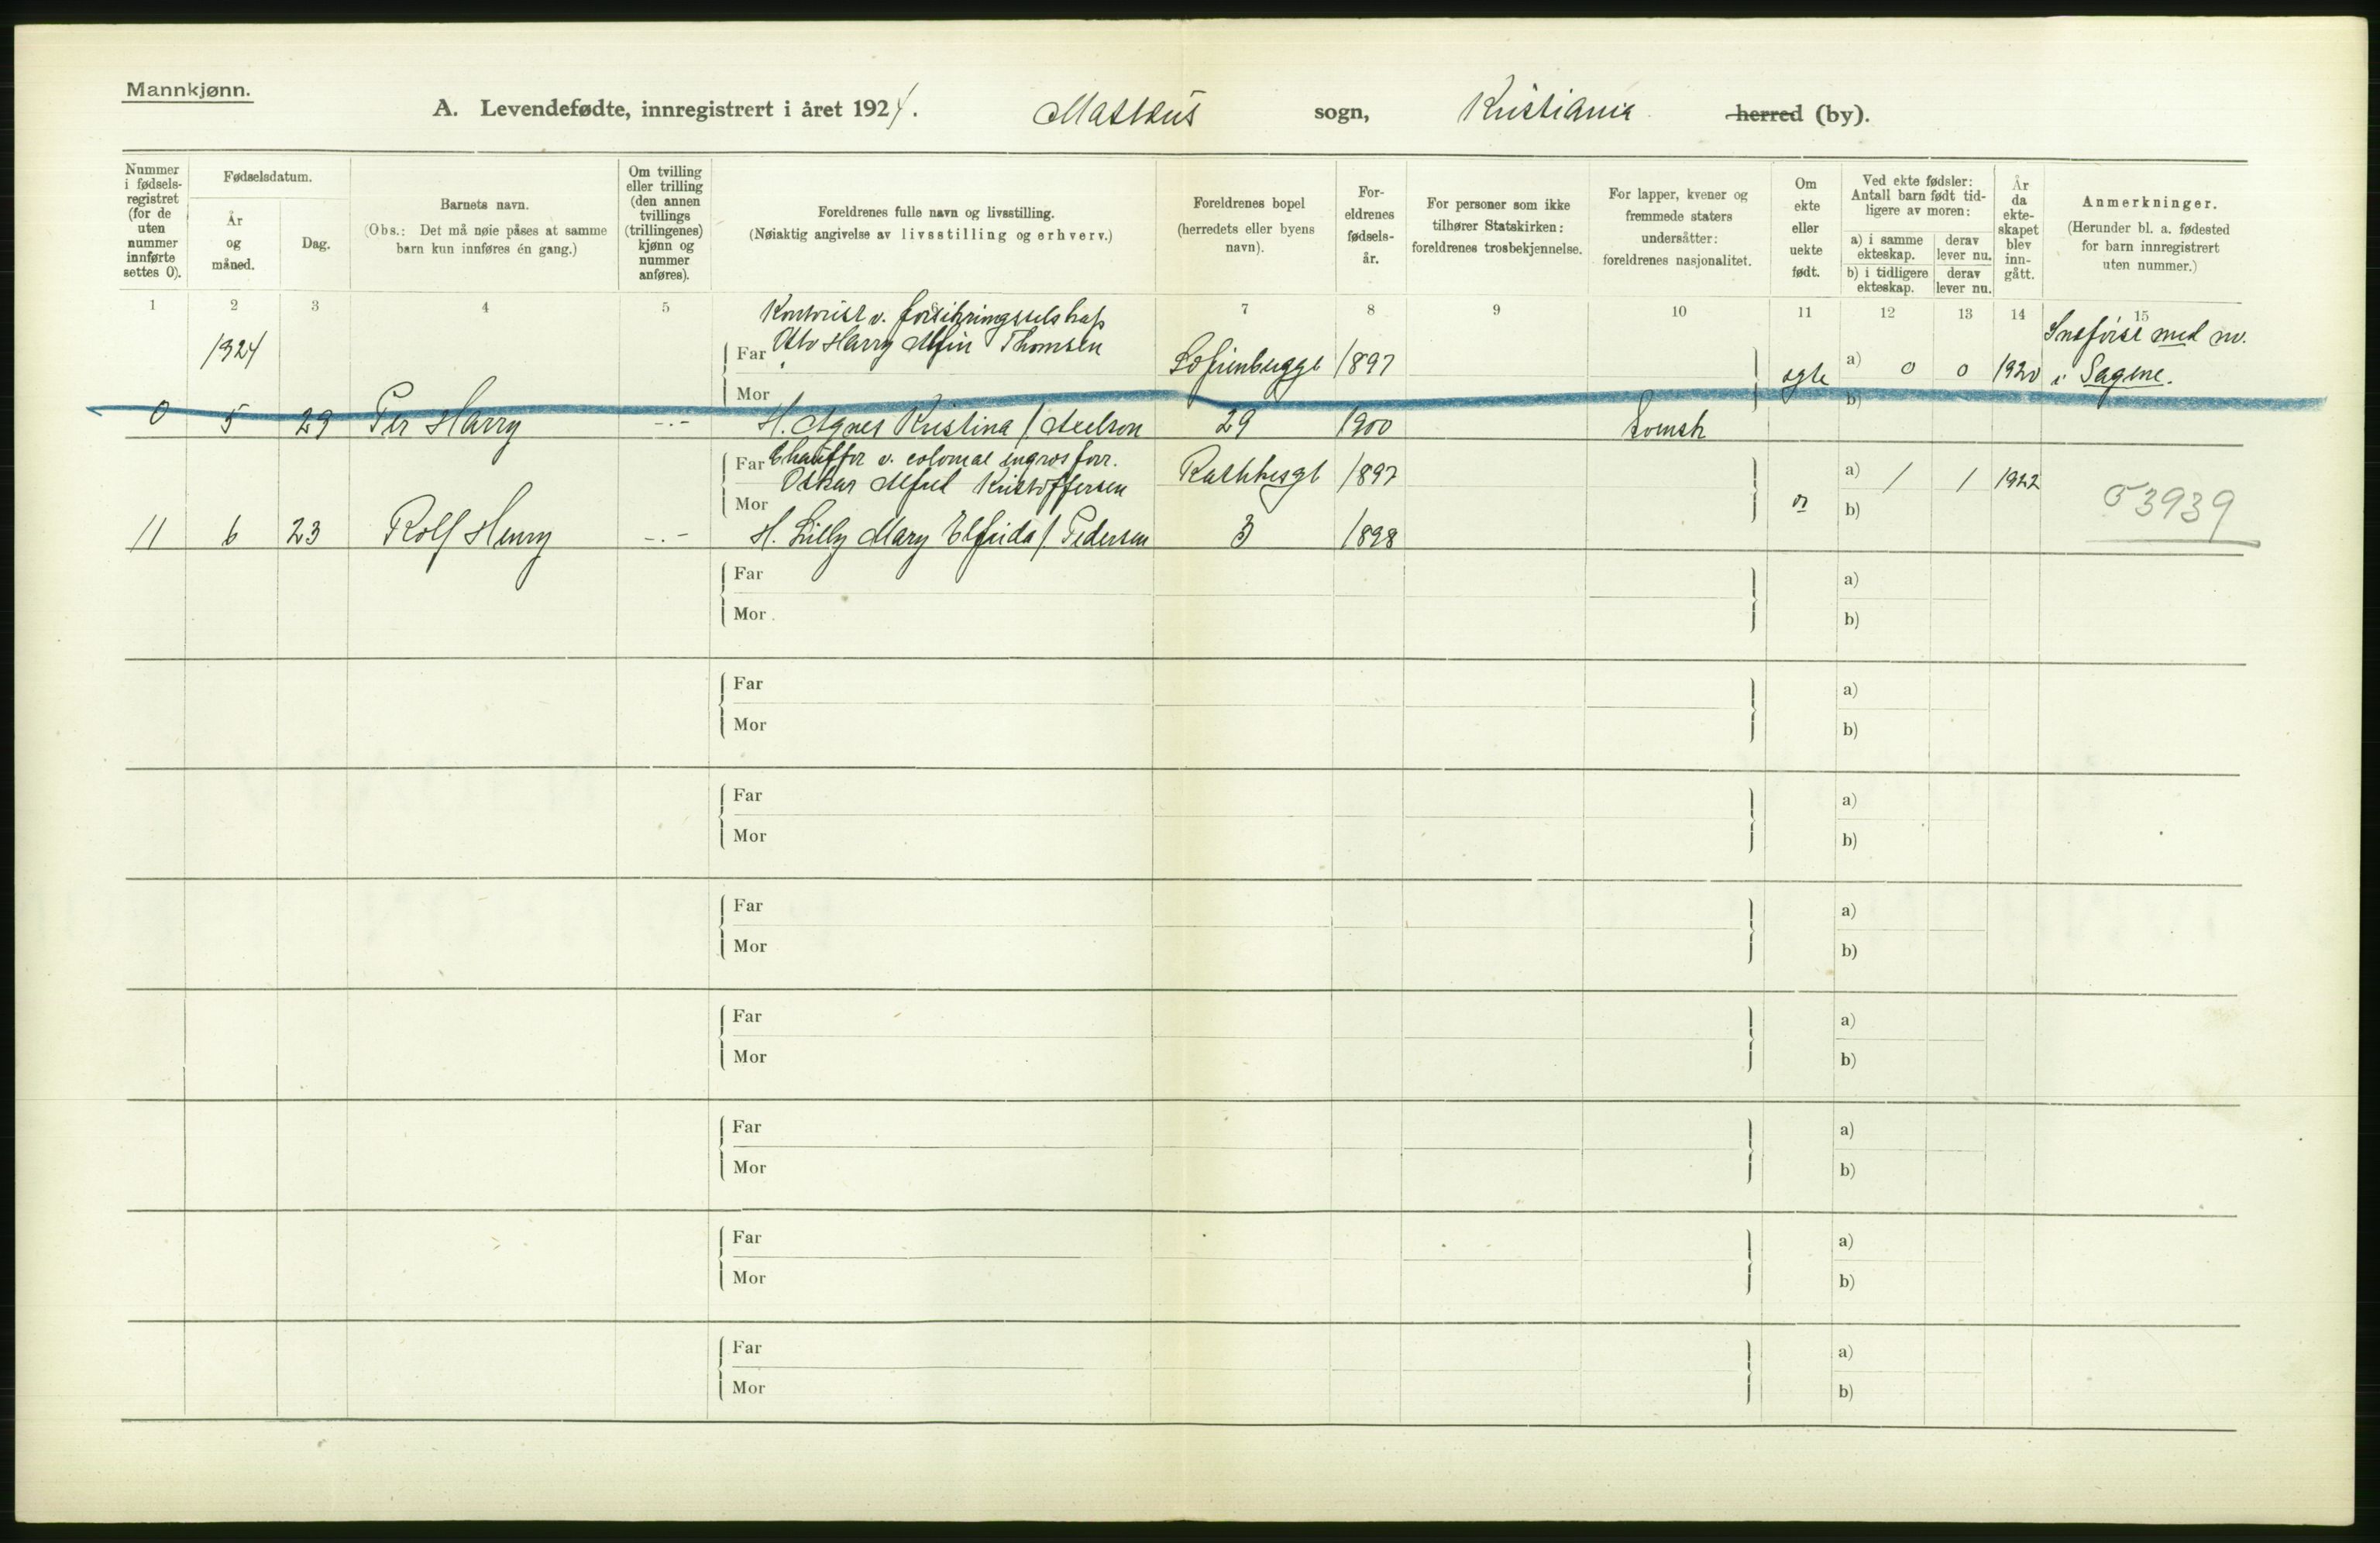 Mannkjønn.
A. Levendefødte, innregistrert i året 1924. Matteus sogn, Kristiania herred (by).
Nummer i fødsels-registret (for de uten nummer innførte settes 0).
Fødselsdatum.
År og måned.
Dag.
Barnets navn.
(Obs.: Det må nøie påses at samme barn kun innføres én gang.)
Om tvilling eller trilling (den annen tvillings (trillingenes) kjønn og nummer anføres).
Foreldrenes fulle navn og livsstilling.
(Nøiaktig angivelse av livsstilling og erhverv.)
Foreldrenes bopel
(herredets eller byens navn).
For-eldrenes fødsels-år.
For personer som ikke tilhører Statskirken: foreldrenes trosbekjennelse.
For lapper, kvener og fremmede staters undersåtter: foreldrenes nasjonalitet.
Om ekte eller uekte født.
Ved ekte fødsler: Antall barn født tid-ligere av moren:
a) i samme ekteskap.
derav lever nu.
b) i tidligere ekteskap.
derav lever nu.
År da ekte-skapet blev inn-gått.
Anmerkninger.
(Herunder bl. a. fødested for barn innregistrert uten nummer.)
1 2 3 4 5 7 8 9 10 11 12 13 14 15
Kontorist v. forsikringsselskap
1924 Far Otto Harry Thomsen Sofienberggt 1897 egte a) 0 0 1920 Innførst med nr. i Sagene.
Mor b)
0 5 29 Per Harry -.- H. Agnes Kristina f. Axelson 29 1900 Svensk
Far Chauffør v. colonial engros forr.
Oskar Alfred Kristoffersen Rathkesgt 1897 a) 1 1 1922 53939
Mor b)
11 6 23 Rolf Henry -.- H. Lilly Mary Elfrida f. Pedersen 3 1898
Far a)
Mor b)
Far a)
Mor b)
Far a)
Mor b)
Far a)
Mor b)
Far a)
Mor b)
Far a)
Mor b)
Far a)
Mor b)
Far a)
Mor b)